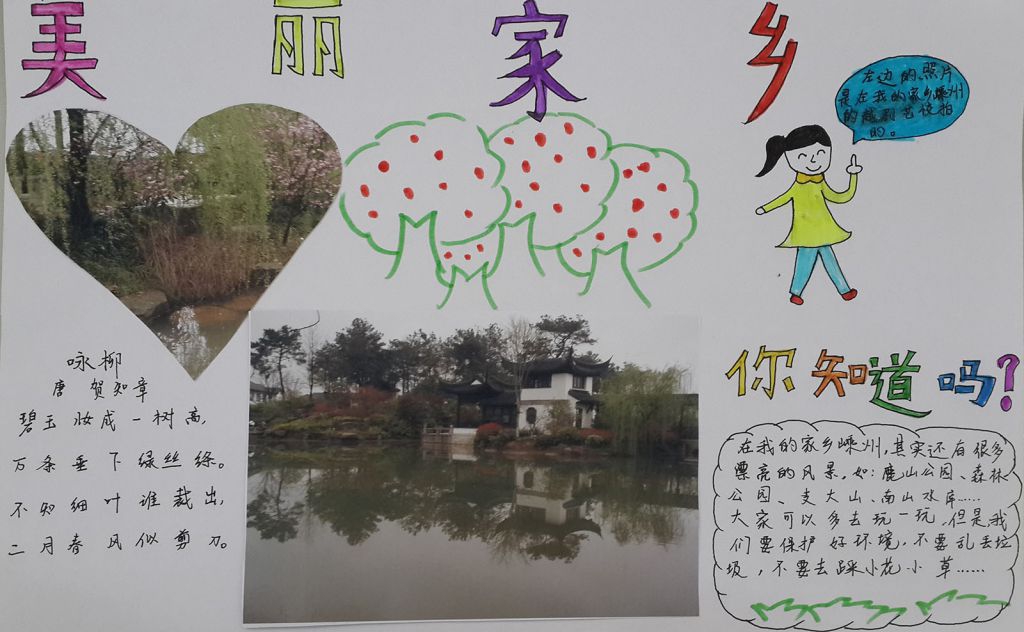 美丽家乡
左边的照片
是在我的家乡嵊州
的越剧艺校拍
的。
咏柳
唐 贺知章
碧玉妆成一树高,
万条垂下绿丝绦。
不知细叶谁裁出,
二月春风似剪刀。
你知道吗?
在我的家乡嵊州,其实还有很多
漂亮的风景,如:鹿山公园、森林
公园、支大山、南山水库……
大家可以多去玩一玩,但是我
们要保护好环境,不要乱丢垃
圾,不要去踩小花小草……